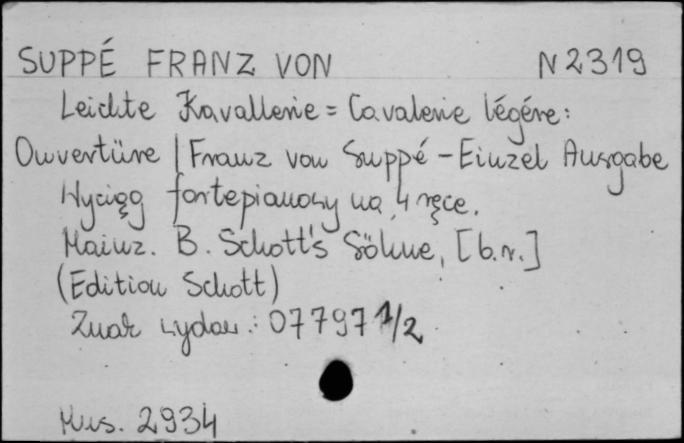 SUPPÉ FRANZ VON N 2319
Leichte Kavallerie = Cavalerie légére:
Ouvertüre / Franz von Suppé - Einzel Ausgabe
Wyciąg fortepianowy na 4 ręce.
Mainz. B. Schott's Söhne, [b.r.]
(Edition Schott)
Znak wydaw.: 07797 1/2
Mus. 2934